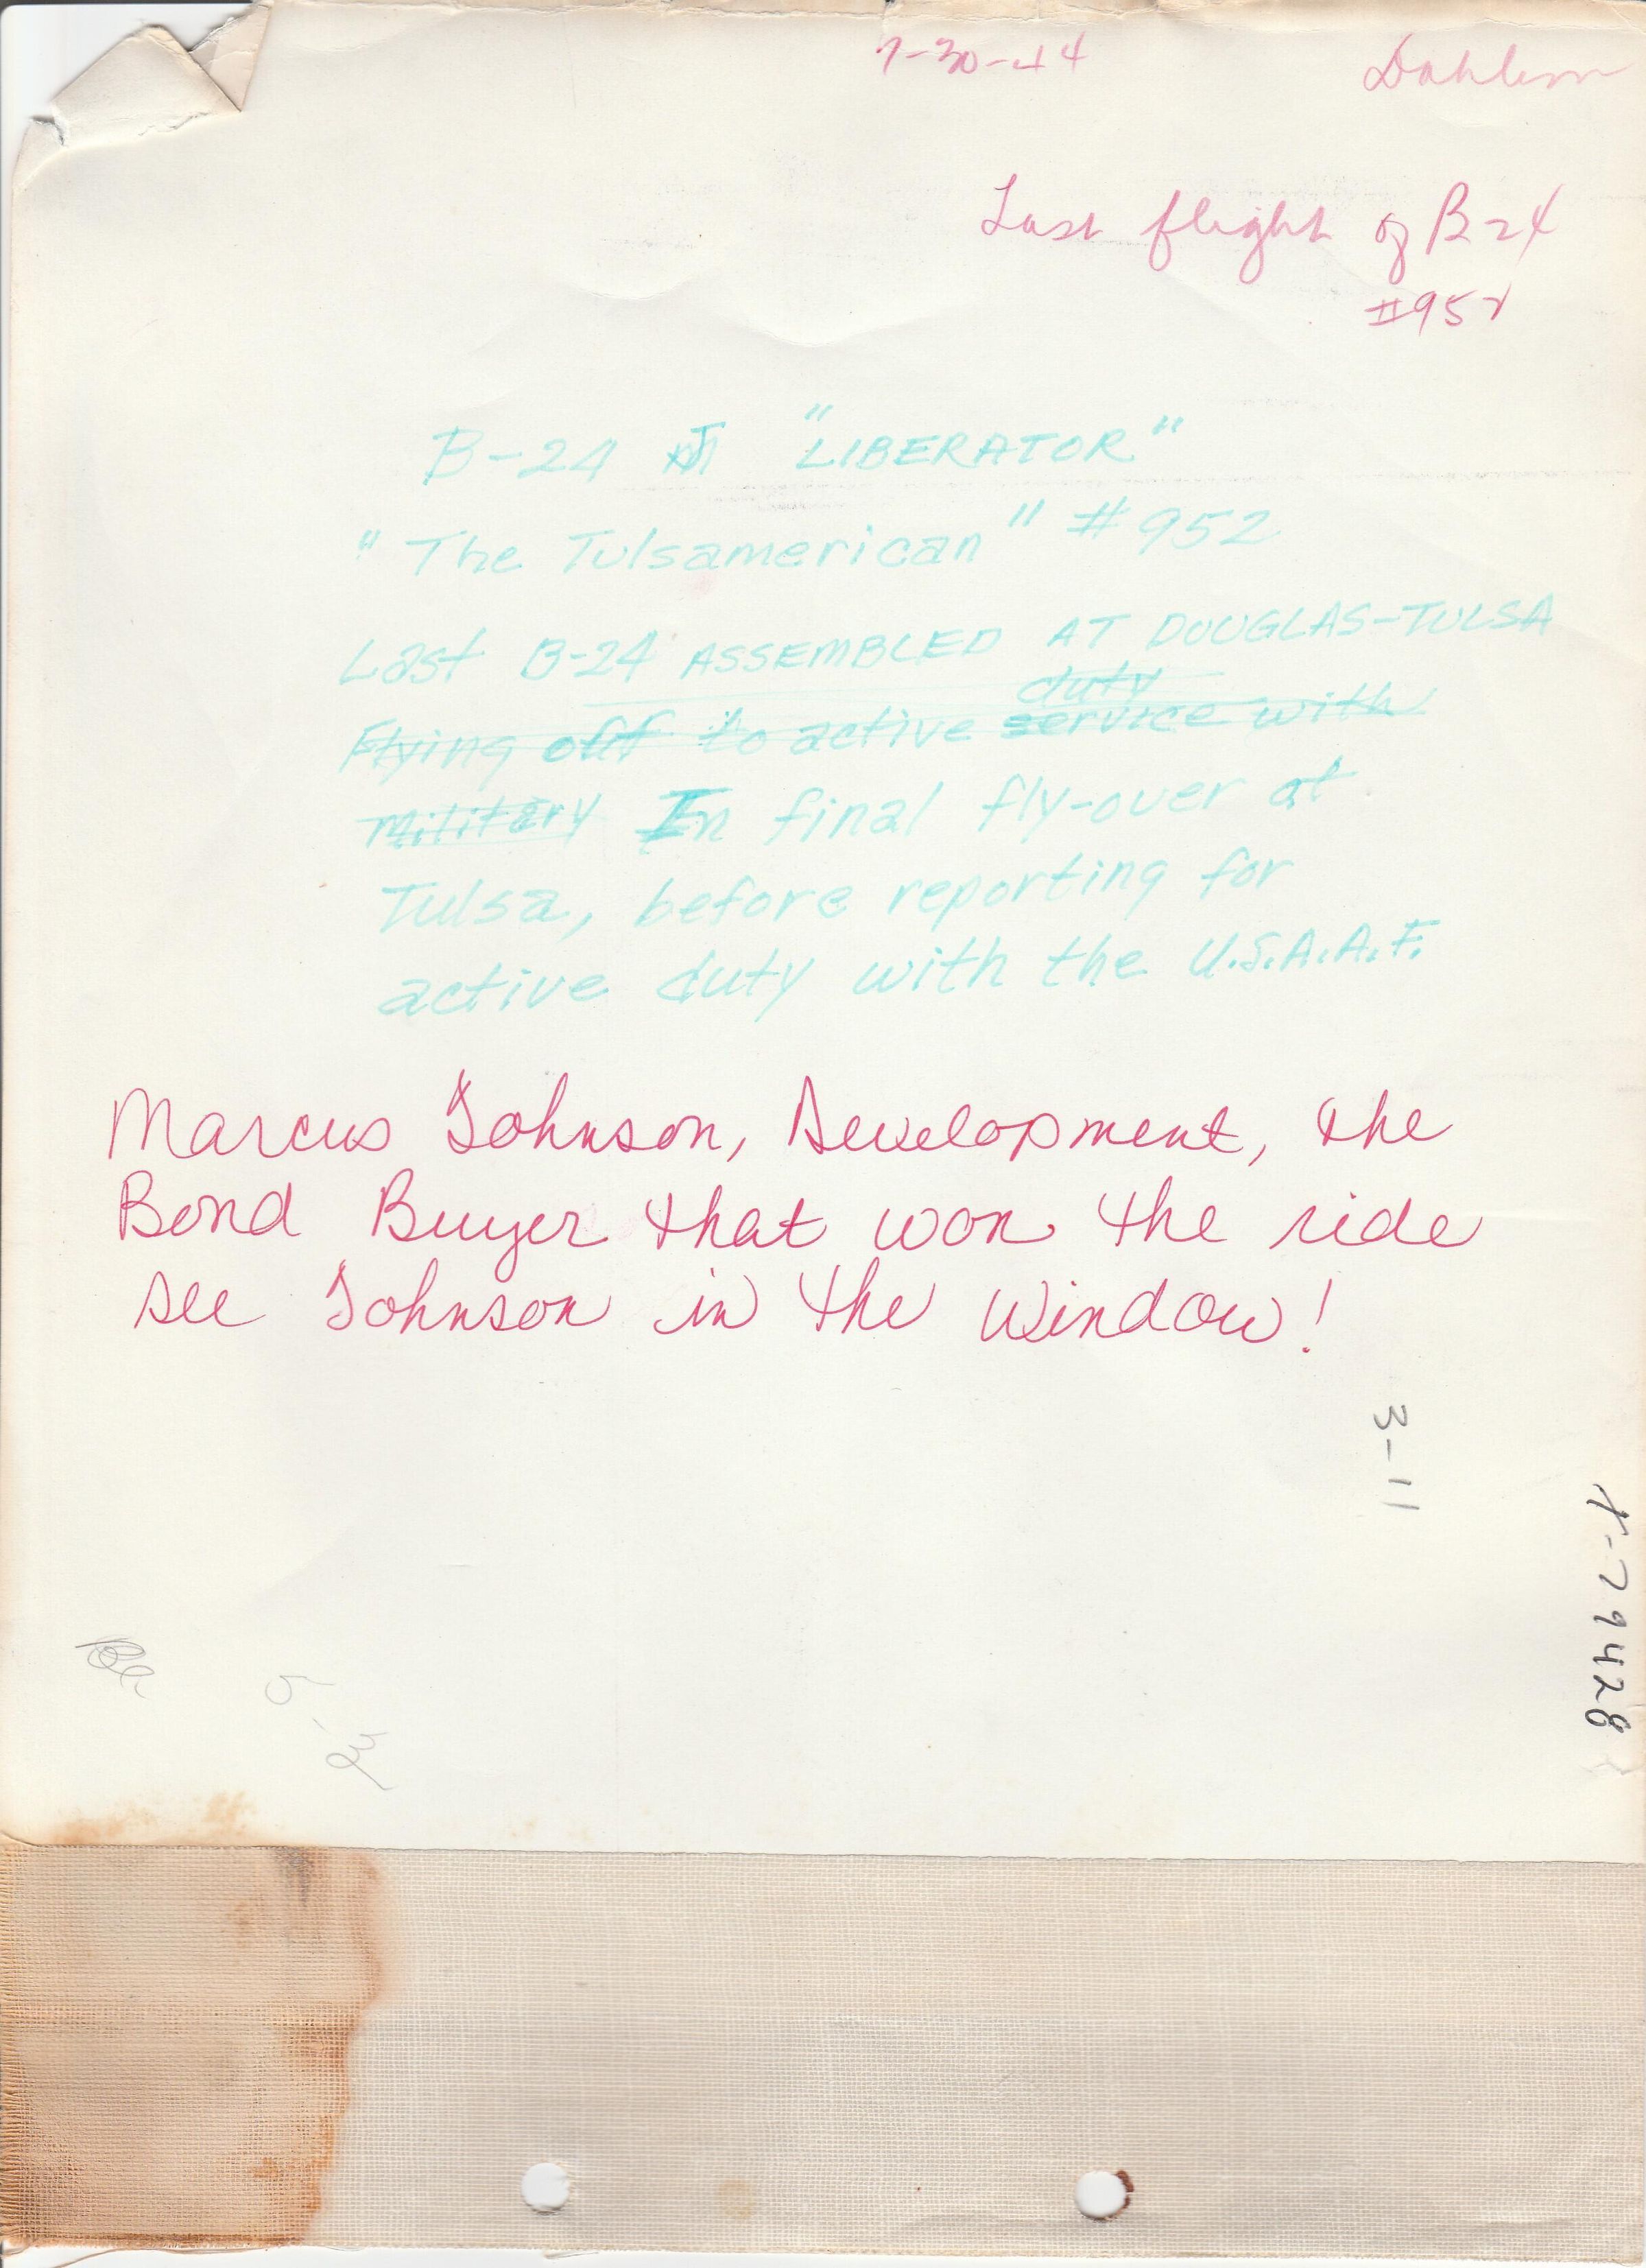 7-30-44 Dahlem
Last flight of B24
#952
B-24 J "LIBERATOR"
"The Tulsamerican" #952
Last B-24 ASSEMBLED AT DOUGLAS-TULSA
duty
Flying off to active service with
military In final fly-over at
Tulsa, before reporting for
active duty with the U.S.A.A.F.
Marcus Johnson, Development, the
Bond Buyer that won the ride
see Johnson in the Window!
3-11
79428